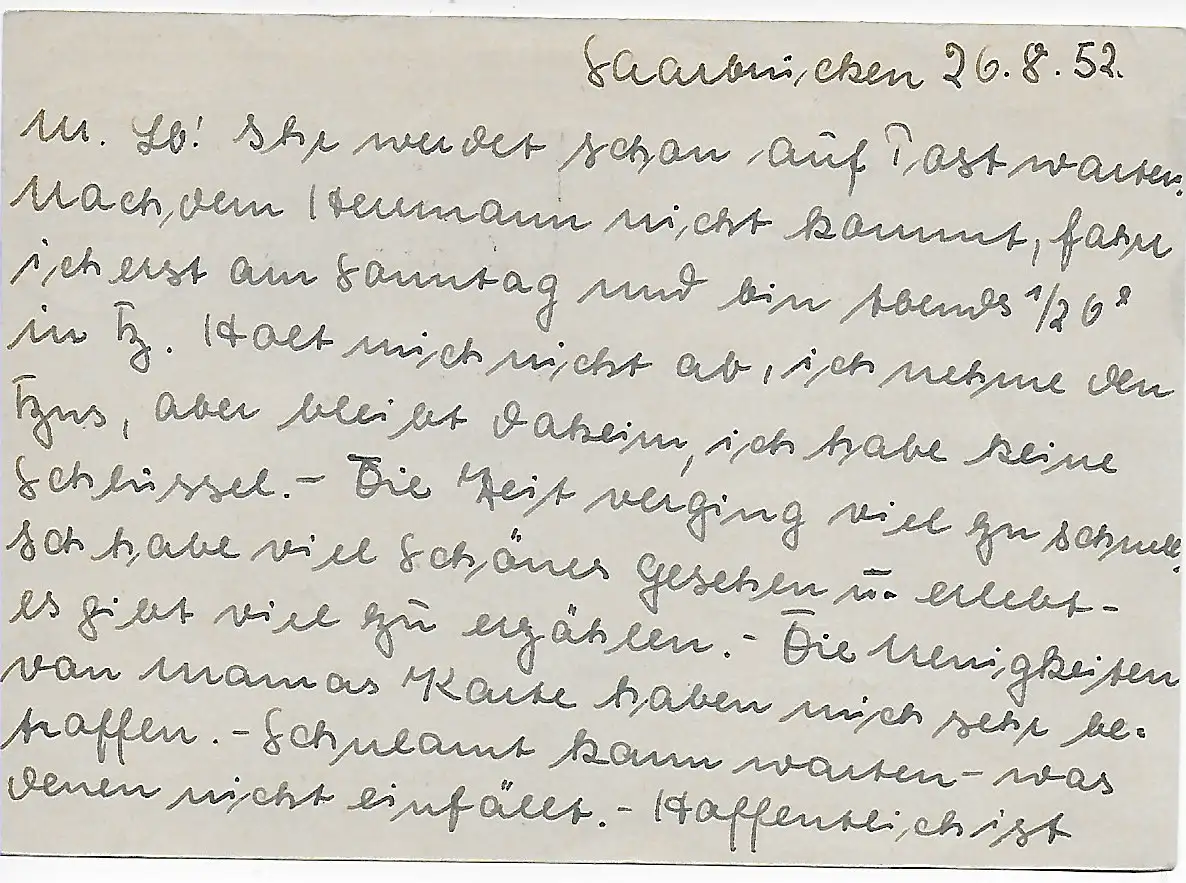 Saarbrücken 26.8.52.
M. Lb! Ihr werdet schon auf Post warten.
Nachdem Hermann nicht kommt, fahr
ich erst am Sonntag und bin abends 1/2 6
in Tz. Holt mich nicht ab, ich nehme den
aber bleibt daheim, ich habe keine
Schlüssel. - Die Zeit verging viel zu schnell,
Ich habe viel Schönes gesehen u. erlebt -
es gibt viel zu erzählen. - Die Neuigkeiten
von Mamas Karte haben mich sehr be-
troffen. - Schulamt kann warten - was
denen nicht einfällt. - Hoffentlich ist